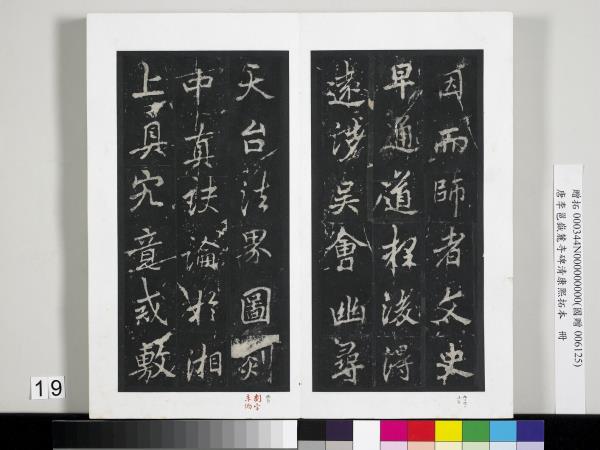 因而師者文史
早通道検浚得
遠涉吳會幽尋
天台法界圖剡
中真訣論於湘
上具究竟戎敷
贈拓 000344N000000000(國贈 006125)
唐李邕嶽麓寺碑清康熙拓本 冊
19